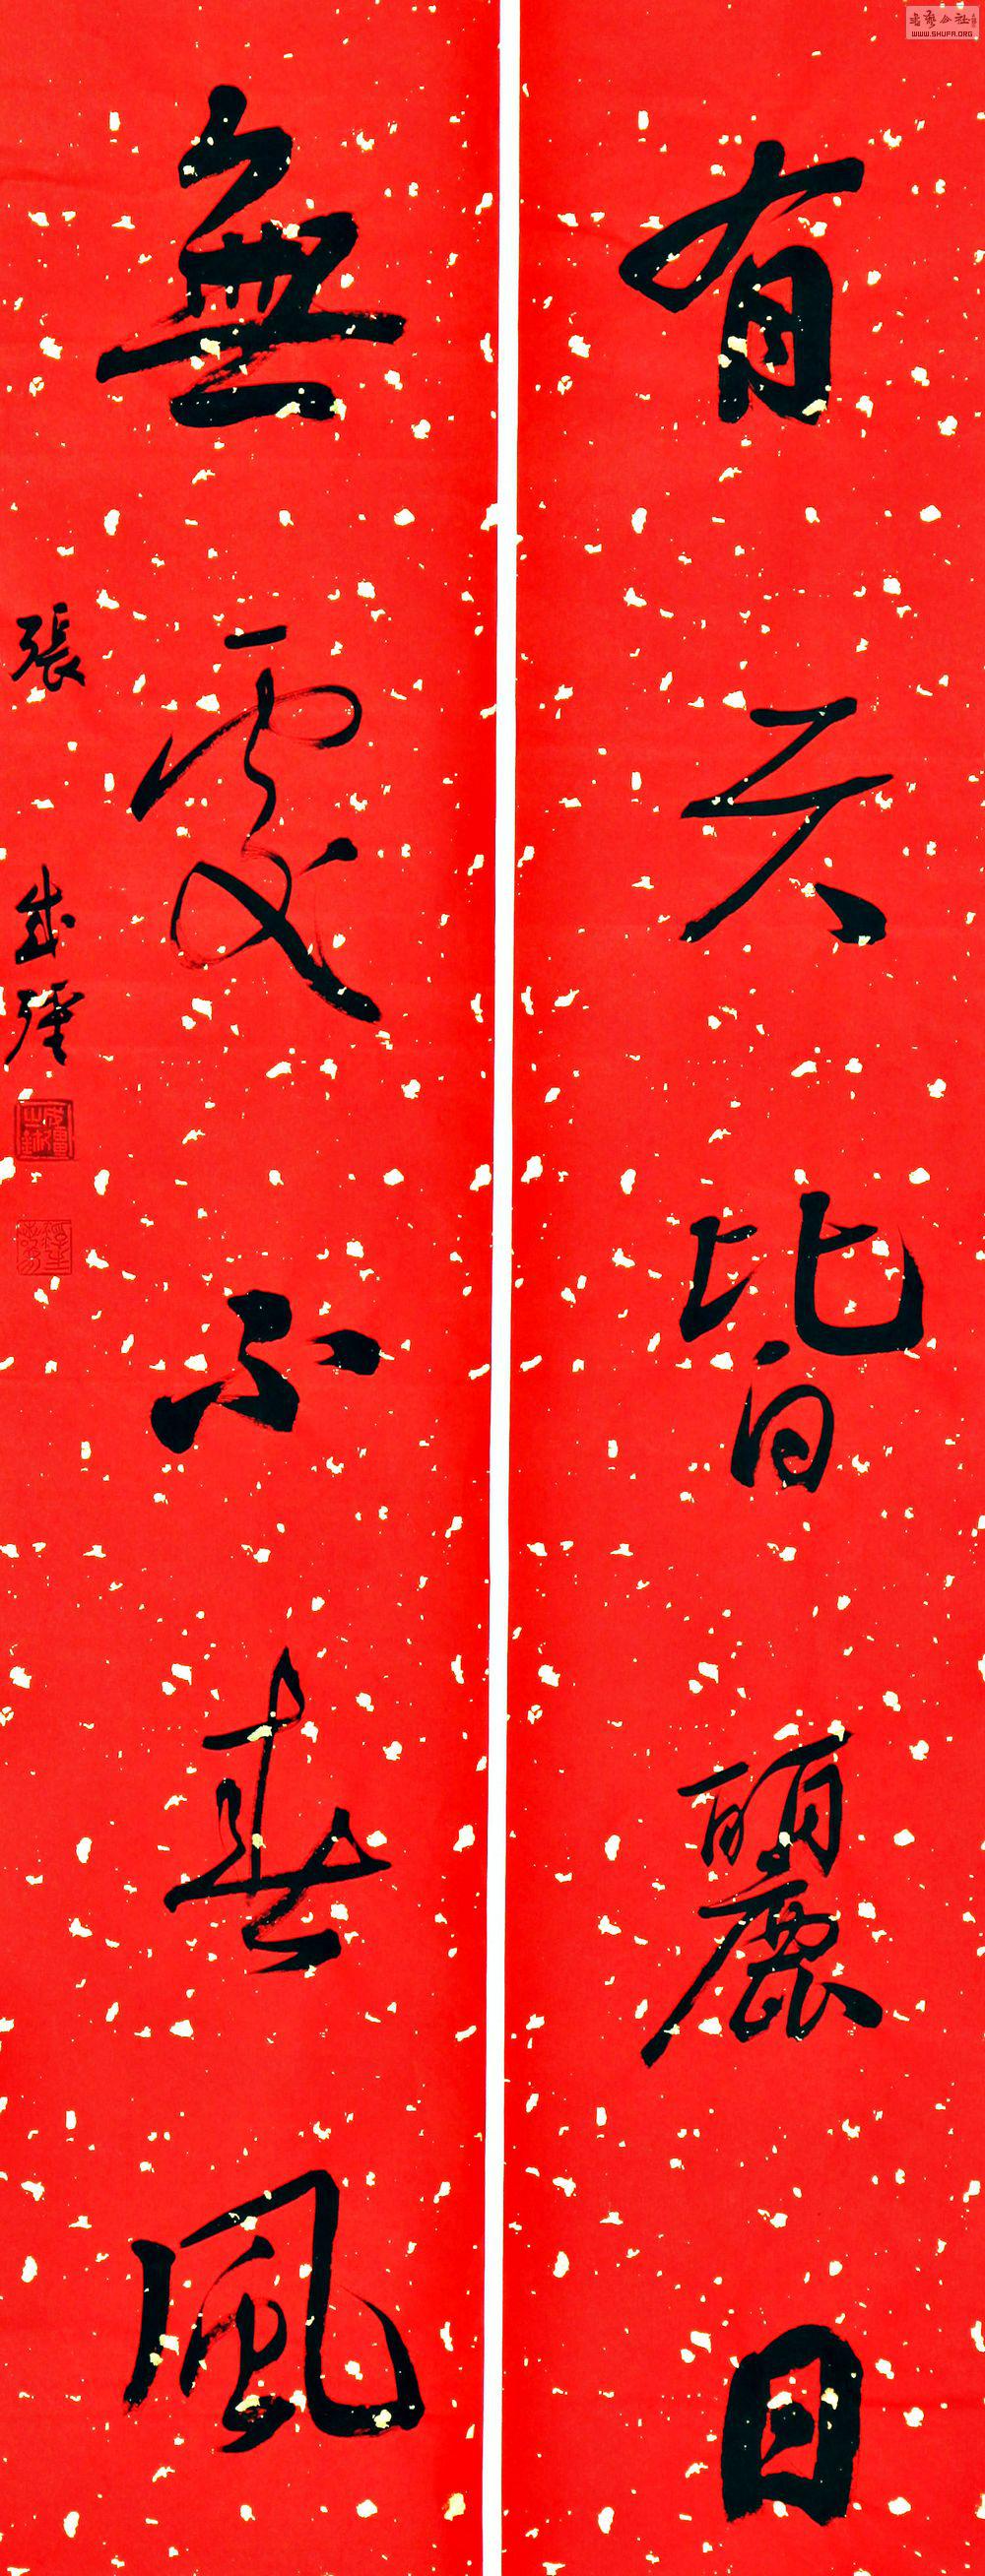 有天皆麗日
無處不春風
張
WWW.SHUFA.ORG